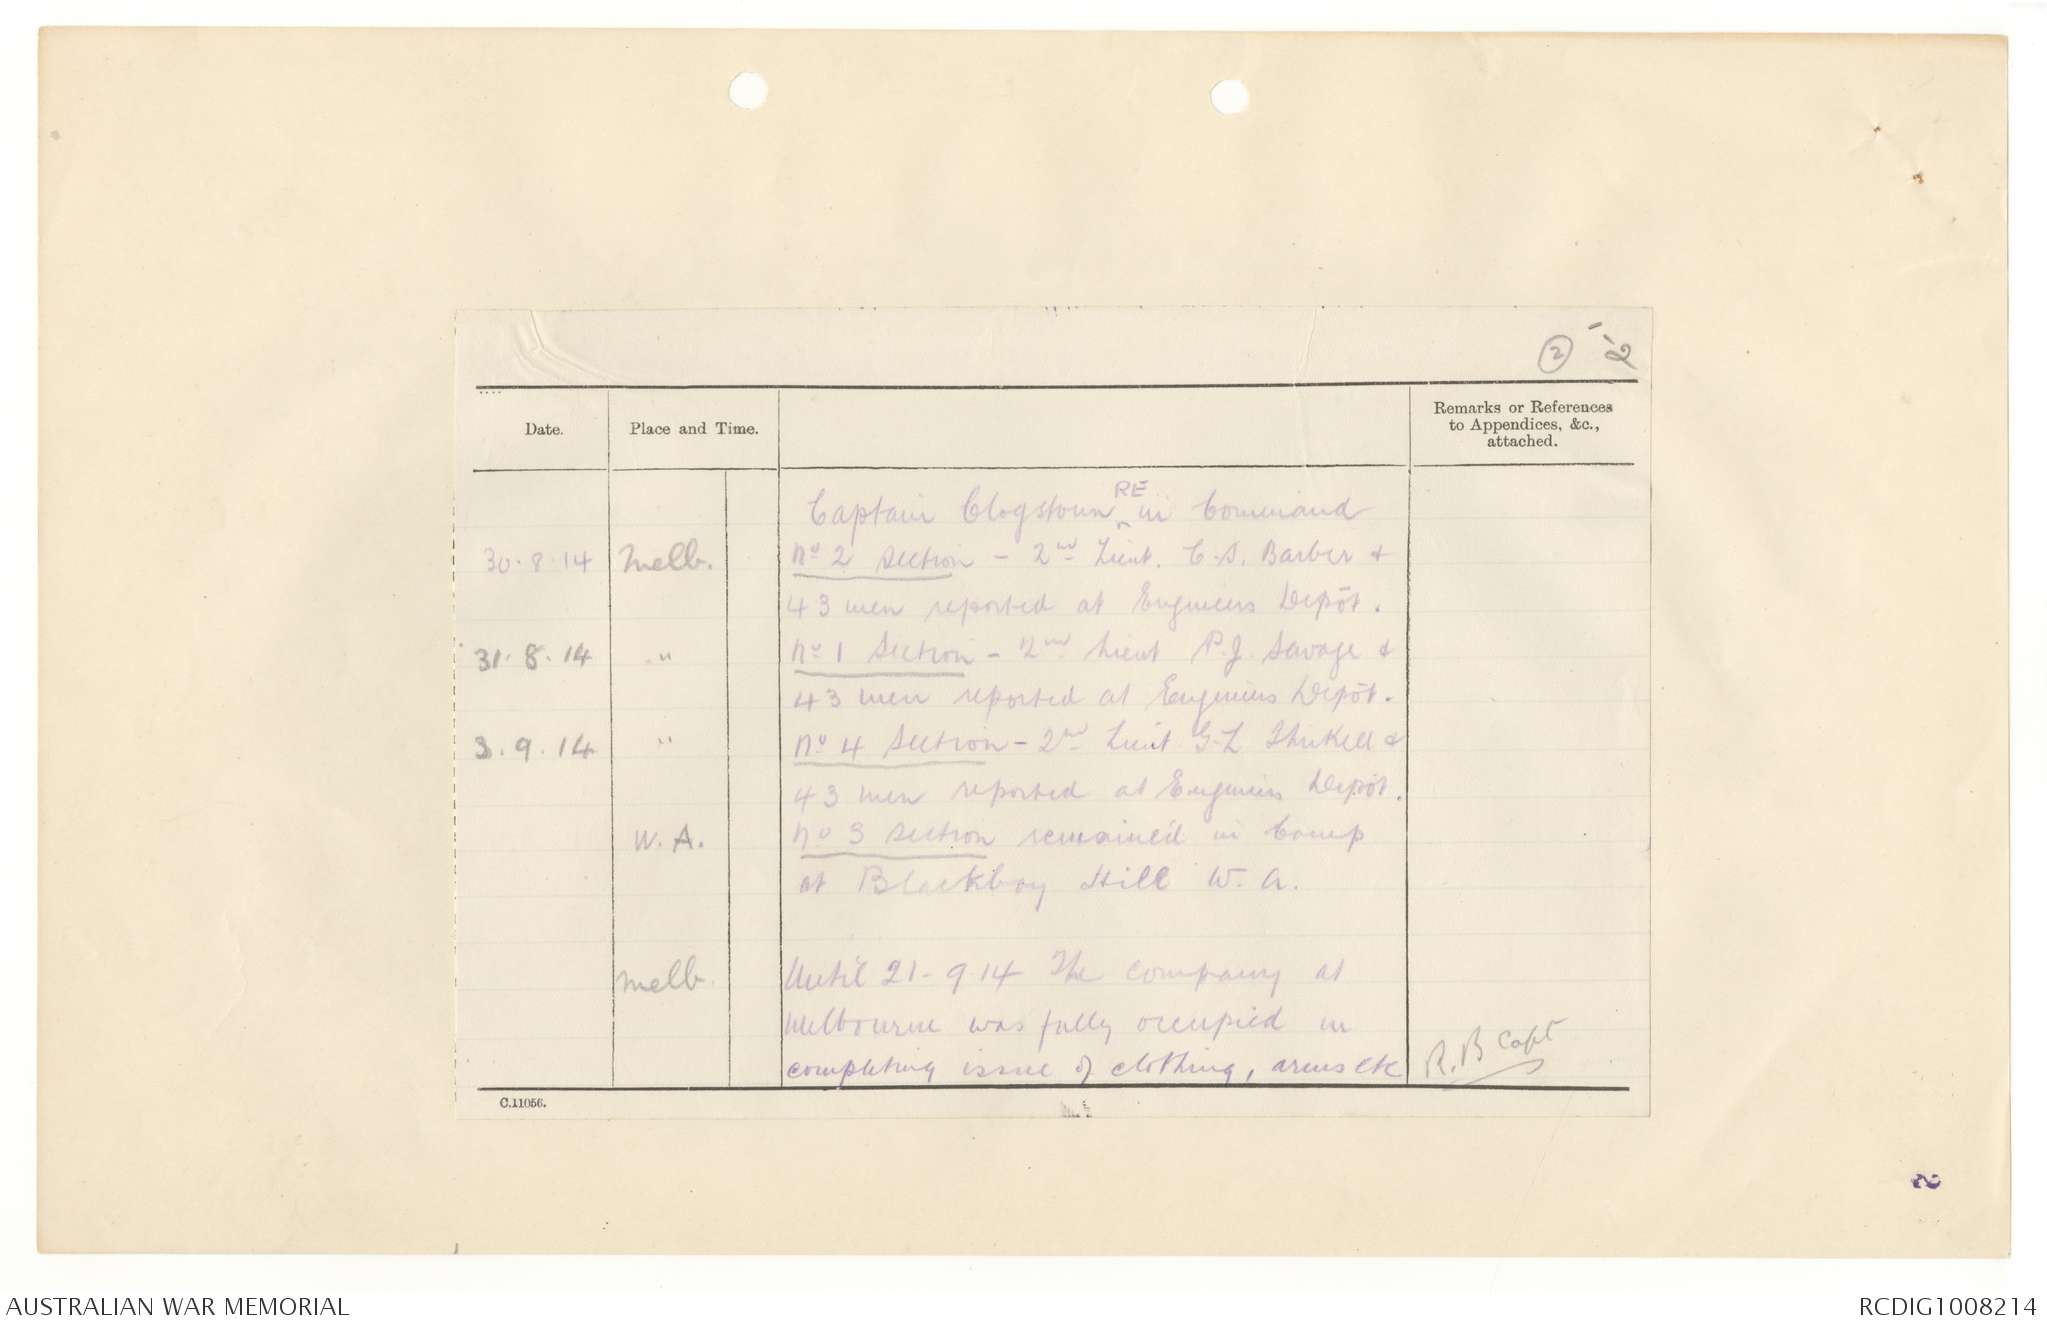 ② 2
Date. Place and Time. Remarks or References to Appendices, &c., attached.
Captain Clogstoun RE in Command
30.8.14 Melb. No 2 Section - 2nd Lieut. C.S. Barber &
43 men reported at Engineers Depôt.
31.8.14 " No 1 Section - 2nd Lieut P.J. Savage &
43 men reported at Engineers Depôt.
3.9.14 " No 4 Section - 2nd Lieut G.L &
43 men reported at Engineers Depôt.
W.A. No 3 Section remained in Camp
at Blackboy Hill W.A.
Melb. Until 21-9-14 The company at
Melbourne was fully occupied in
completing issue of clothing, arms etc R.B Capt
C.11056.
2
AUSTRALIAN WAR MEMORIAL RCDIG1008214